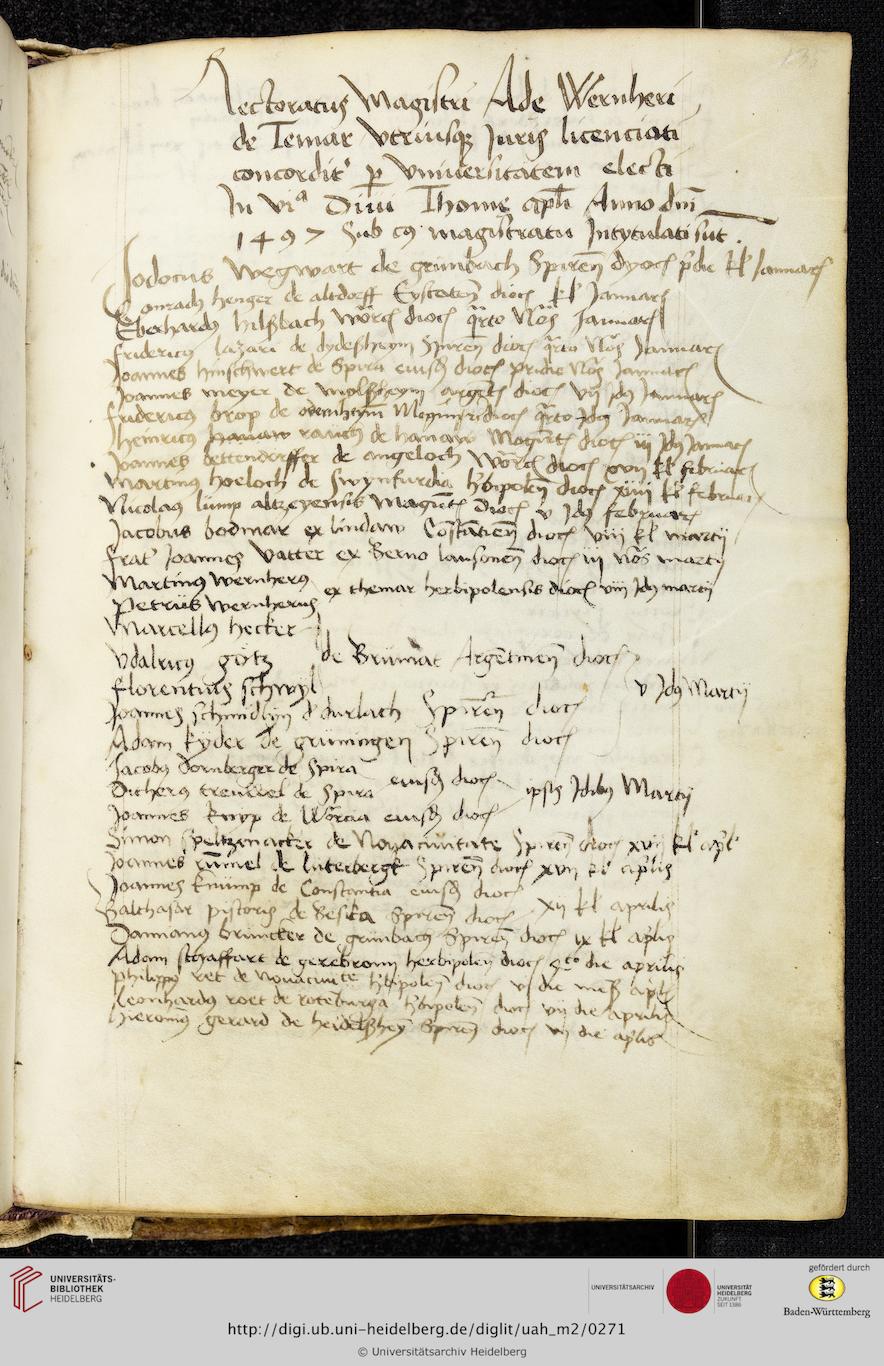 Rectoratus Magistri Ade Wernheri
de Temar Vtriusq Juris licenciati
concordit p vniuersitatem electi
In via Diui Thome apli Anno dni
1497 Sub cuius magistratu Intytulati sut .
Jodocus wegwart de grunbach Spiren dyoc pdie kl Januarij
Conradus henger de altdorff Eysteten dioc kl Januarij
Eberhardus hilsbach worc dioc qrto Nos Januarij
fridericus lazari de dydesheym Spiren dioc qrto Nos Januarij
Joannes hinschwert de Spira eiusd dioc pridie Nos Januarij
Joannes meyer de wolfsheym argent dioc vij Jdus Januarij
fridericus brop de odernheym dioc qrto Jdus Januarij
Heinricus rauch de hanaw Magunt dioc iij Jdus Januarij
Joannes bettendorffer de angeloch worc dioc xvij kl februarij
Martinus hoeloch de swynfurdia hbipolen dioc xiiij kl februarij
Nicolaus lump altzeyensis Magunt Dioc v Jdus februarij
Jacobus bodmar ex lindaw Constantien dioc viij kl martij
frat Joannes vatter ex Berno lausonen dioc iij nos martij
Martinus wernherus
ex themar herbipolensis dioc viij Jdus martij
Petrus wernherus
Marcellus hecker
Vdalricus gotz de Brumat Argentinen dioc
florentius schwyl
v Jdus Martij
Joannes schmidlyn d durlach Spiren dioc
Adam kyder de gruningen Spiren dioc
Jacobus dornberger de Spira
eiusd dioc ipsis Jdibus Martij
Ditherus de Spira
Joannes knyp de Worcia eiusd dioc
Simon Speltzmacker de Nouaciuitate Spiren dioc xvij kl apl
Joannes de luterbergk Spiren dioc xvij kl aplis
Joannes knump de Constantia eiusd dioc
xij kl aprilis
Balthasar pistoris de Besika Spiren dioc
Damianus bruncker de grunbach Spiren dioc ix kl aplis
Adam schaffart de gerebronn herbipolen dioc qto die aprilis
philippus ret de nouaciuite hbipolen dioc v die apl
leonhardus roet de rotenburga hbipolen dioc vij die aprilis
hieronimus gerard de heidelshey Spiren dioc vij die aplis
UNIVERSITÄTS-
BIBLIOTHEK
HEIDELBERG
UNIVERSITÄTSARCHIV
UNIVERSITÄT
HEIDELBERG
ZUKUNFT
SEIT 1386
gefördert durch
Baden-Württemberg
http://digi.ub.uni-heidelberg.de/diglit/uah_m2/0271
© Universitätsarchiv Heidelberg